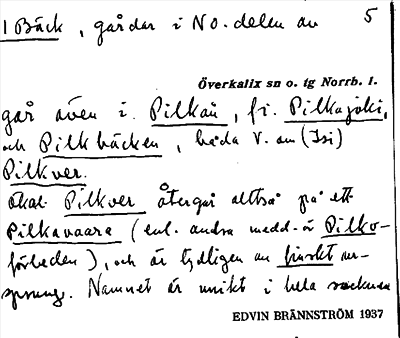 1 Bäck, gårdar i NO. delen av 5
Överkalix sn o. tg Norrb. l.
går även i Pilkån, fi. Pilkajoki,
och Pilkbäcken, båda V. om (Isi)
Pilkver.
Ökal. Pilkver återgår alltså på ett
Pilkavaara (enl. andra medd. är Pilko-
förleden), och är tydligen av finskt ur-
sprung. Namnet är unikt i hela socknen
EDVIN BRÄNNSTRÖM 1937